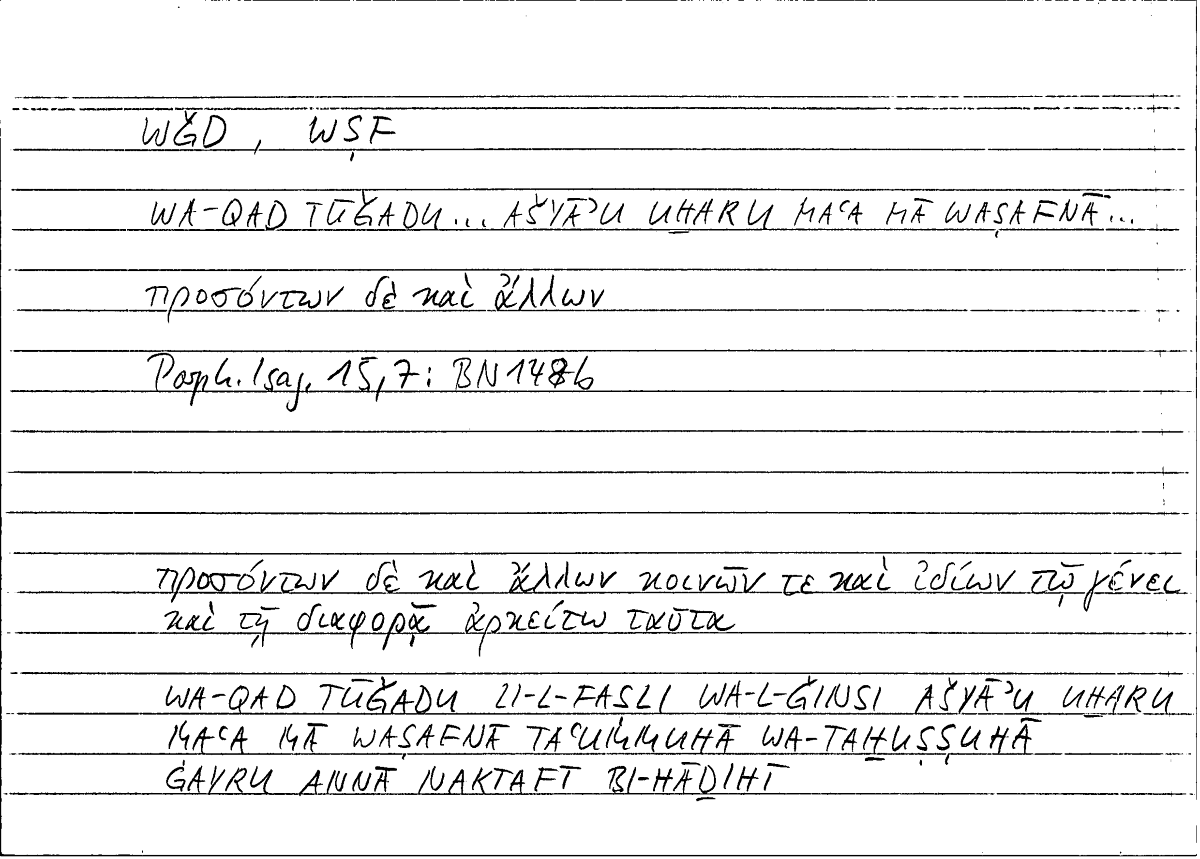 WǦD, WṢF
WA-QAD TŪǦADU... AŠYĀʾU UḪARU MAʿA MĀ WAṢAFNĀ...
προσόντων δὲ καὶ ἄλλων
Porph. Isag. 15,7: BN 148b
προσόντων δὲ καὶ ἄλλων κοινῶν τε καὶ ἰδίων τῷ γένει
καὶ τῇ διαφορᾷ ἀρκείτω ταῦτα
WA-QAD TŪǦADU LI-L-FASLI WA-L-ǦINSI AŠYĀʾU UḪARU
MAʿA MĀ WAṢAFNĀ TAʿUMMUHĀ WA-TAḪUṢṢUHĀ
ĠAYRU ANNĀ NAKTAFĪ BI-HĀḎIHĪ